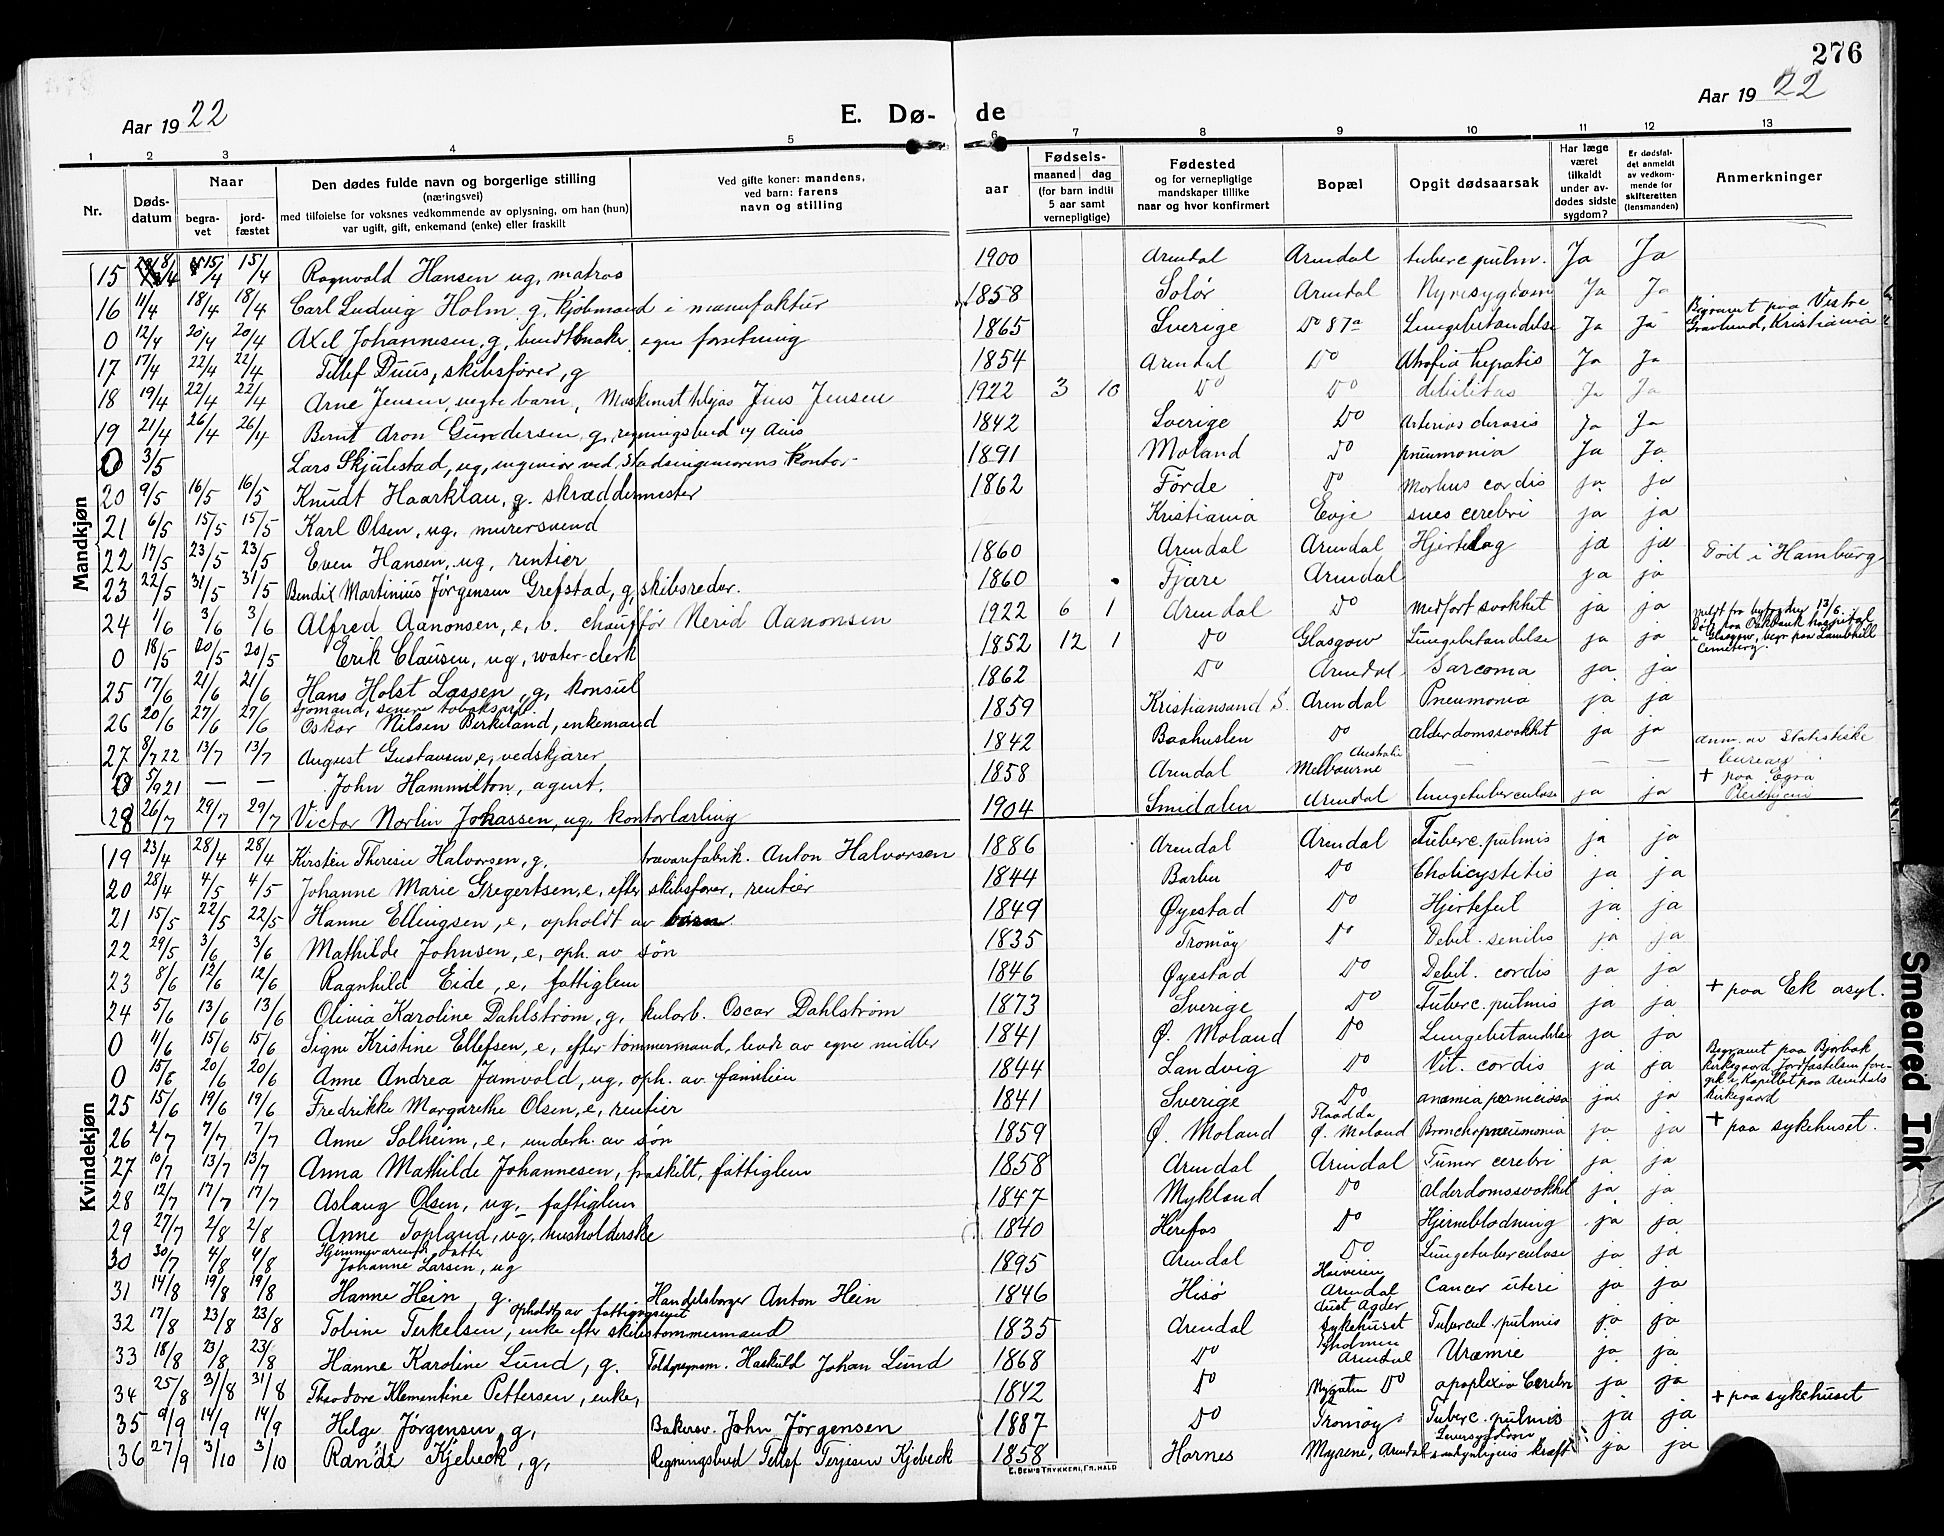 276
Aar 1922
E. Dø-
de
Aar 1922
1 2 3 4 5 6 7 8 9 10 11 12 13
Nr.
Døds-
datum
Naar
begra-
vet
jord-
fæstet
Den dødes fulde navn og borgerlige stilling
(næringsvei)
med tilføielse for voksnes vedkommende av oplysning, om han (hun)
var ugift, gift, enkemand (enke) eller fraskilt
Ved gifte koner: mandens,
ved barn: farens
navn og stilling
Fødsels-
aar
maaned dag
(for barn indtil
5 aar samt
vernepligtige)
Fødested
og for vernepligtige
mandskaper tillike
naar og hvor konfirmert
Bopæl
Opgit dødsaarsak
Har læge
været
tilkaldt
under av-
dødes sidste
sygdom?
Er dødsfal-
det anmeldt
av vedkom-
mende for
skifteretten
(lensmanden)
Anmerkninger
Mandkjøn
15 15/4 15/4 Ragnvald Hansen ug, matros 1900 Arendal Arendal tuberc pulm. Ja Ja
16 11/4 18/4 18/4 Carl Ludvig Holm g. kjøbmand i manufaktur 1858 Solør Arendal Nyresygdom Ja Ja
0 12/4 20/4 20/4 Axel Johannesen, g, bundtmaker, egen forretning 1865 Sverige Do 87a Lungebetændelse Ja Ja Begravet paa Vestre Gravlund, Kristiania
17 17/4 22/4 22/4 Tellef Duus, skibsfører, g 1854 Arendal Do Atrofia hepatis Ja Ja
18 19/4 22/4 22/4 Arne Jensen, uegte barn, Maskinist Jens Jensen 1922 3 10 Do Do debilitas Ja Ja
19 21/4 26/4 26/4 Bernt Aron Gundersen, g, regningsbud 1842 Sverige Do Arteriosclerosis Ja Ja
0 3/5 Lars Skjulestad, ug, ingeniør ved Stadsingeniørens kontor 1891 Moland Do pneumonia Ja Ja
20 9/5 16/5 16/5 Knudt Haarklau, g. skræddermester 1862 Førde Do Morbus cordis ja ja
21 6/5 15/5 15/5 Karl Olsen, ug, murersvend Kristiania Evje cerebri ja ja
22 17/5 23/5 23/5 Even Hansen, ug, rentier 1860 Arendal Arendal Hjerteslag ja ja
23 22/5 31/5 31/5 Bendix Martinius Jørgensen Grefstad, g, skibsreder. 1860 Fjære Arendal ja ja Død i Hamburg
24 1/6 3/6 3/6 Alfred Aanonsen, e, b. chauffør Nerid Aanonsen 1922 6 1 Arendal Do Medfødt svakhet ja ja
0 18/5 20/5 20/5 Erik Clausen, ug, water-clerk 1852 12 1 Do Glasgow Lungebetændelse ja ja Meldt fra byfogden 13/6. Død paa Oakbank hospital i Glasgow, begr paa Lambhill Cemetery.
25 17/6 21/6 21/6 Hans Holst Lassen, g, konsul 1862 Do Arendal Sarcoma ja ja
Sjømand, senere
26 20/6 27/6 27/6 Oskar Nilsen Birkeland, enkemand 1859 Kristiansand S. Arendal Pneumonia ja ja
27 8/7 22 13/7 13/7 August Gustavsen, e, vedskjærer 1842 Baahuslen Do alderdomssvakhet ja ja
0 5/9 21 — — John Hammilton, agent. 1858 Arendal Melbourne Australia — — — anm. av Statistiske bureau
28 26/7 29/7 29/7 Victor Norlin Johassen, ug, kontorlærling 1904 Smedalen Arendal lungetuberculose ja ja + paa Egra Pleiehjem
Kvindekjøn
19 23/4 28/4 28/4 Kirsten Therese Halvorsen, g, travarefabrik. Anton Halvorsen 1886 Arendal Arendal Tuberc. pulmis ja ja
20 28/4 4/5 4/5 Johanne Marie Gregertsen, e, efter skibsfører, rentier 1844 Barbu Do Cholicystitis ja ja
21 15/5 22/5 22/5 Hanne Ellingsen, e, opholdt av barn. 1849 Øyestad Do Hjertefeil ja ja
22 29/5 3/6 3/6 Mathilde Johnsen, e, oph. av søn 1835 Tromøy Do Debil. senilis ja ja
23 8/6 12/6 12/6 Ragnhild Eide, e, fattiglem 1846 Øyestad Do Debil. cordis ja ja
24 5/6 13/6 13/6 Olivia Karoline Dahlstrøm, g, kularb. Oscar Dahlstrøm 1873 Sverige Do Tuberc. pulmis ja ja + paa Ek asyl.
0 11/6 15/6 15/6 Signe Kristine Ellefsen, e, efter tømmermand, levde av egne midler 1841 Ø. Moland Do Lungebetændelse ja ja
0 15/6 20/6 20/6 Anne Andrea Jamvold, ug, oph. av familien 1844 Landvig Do Vit. cordis ja ja Begravet paa Bjorbæk kirkegaard. Jordfæstelsen foregik i Kapellet paa Arendals kirkegaard
25 15/6 19/6 19/6 Fredrikke Margarethe Olsen, e, rentier 1841 Sverige Do anæmia perniciosa ja ja
26 2/7 7/7 7/7 Anne Solheim, e, underh. av søn 1859 Ø. Moland Flaadda Ø. Moland Bronchopneumonia ja ja + paa sykehuset.
27 10/7 13/7 13/7 Anna Mathilde Johannesen, fraskilt, fattiglem 1858 Arendal Arendal Tumor cerebri ja ja
28 12/7 17/7 17/7 Aslaug Olsen, ug, fattiglem 1847 Mykland Do alderdomssvakhet ja ja
29 27/7 2/8 2/8 Anne Topland, ug, husholderske 1840 Herefos Do Hjerneblødning ja ja
30 30/7 4/8 4/8 Hjemmeværende datter Johanne Larsen, ug 1895 Arendal Do Lungetuberculose ja ja
31 14/8 19/8 19/8 Hanne Hein, g. Handelsborger Anton Hein 1846 Hisø Haiveien Arendal Cancer uteri ja ja
opholdt av fattigvesenet
32 17/8 23/8 23/8 Tobine Terkelsen, enke efter skibstømmermand 1835 Arendal Aust Agder sykehuset Tubercul. pulmis ja ja
33 18/8 23/8 23/8 Hanne Karoline Lund, g. Toldopsynsm. Haskuld Johan Lund 1868 Do Tyholmen Arendal Uræmie ja ja
34 25/8 31/8 31/8 Theodore Klementine Pettersen, enke, 1842 Do Nygaten Do apoplexia Cerebri ja ja + paa sykehuset
35 9/9 14/9 14/9 Helge Jørgensen, g, Bakersv. John Jørgensen 1887 Do Tromøy Tuberc. pulmis ja ja
36 27/9 3/10 3/10 Randi Kjebeck, g, Regningsbud Tellef Terjesen Kjebeck 1858 Hornes Myrene, Arendal Leversygdom sandsynligvis kræft ja ja
E. SEM'S TRYKKERI, FR.HALD
Smeared Ink